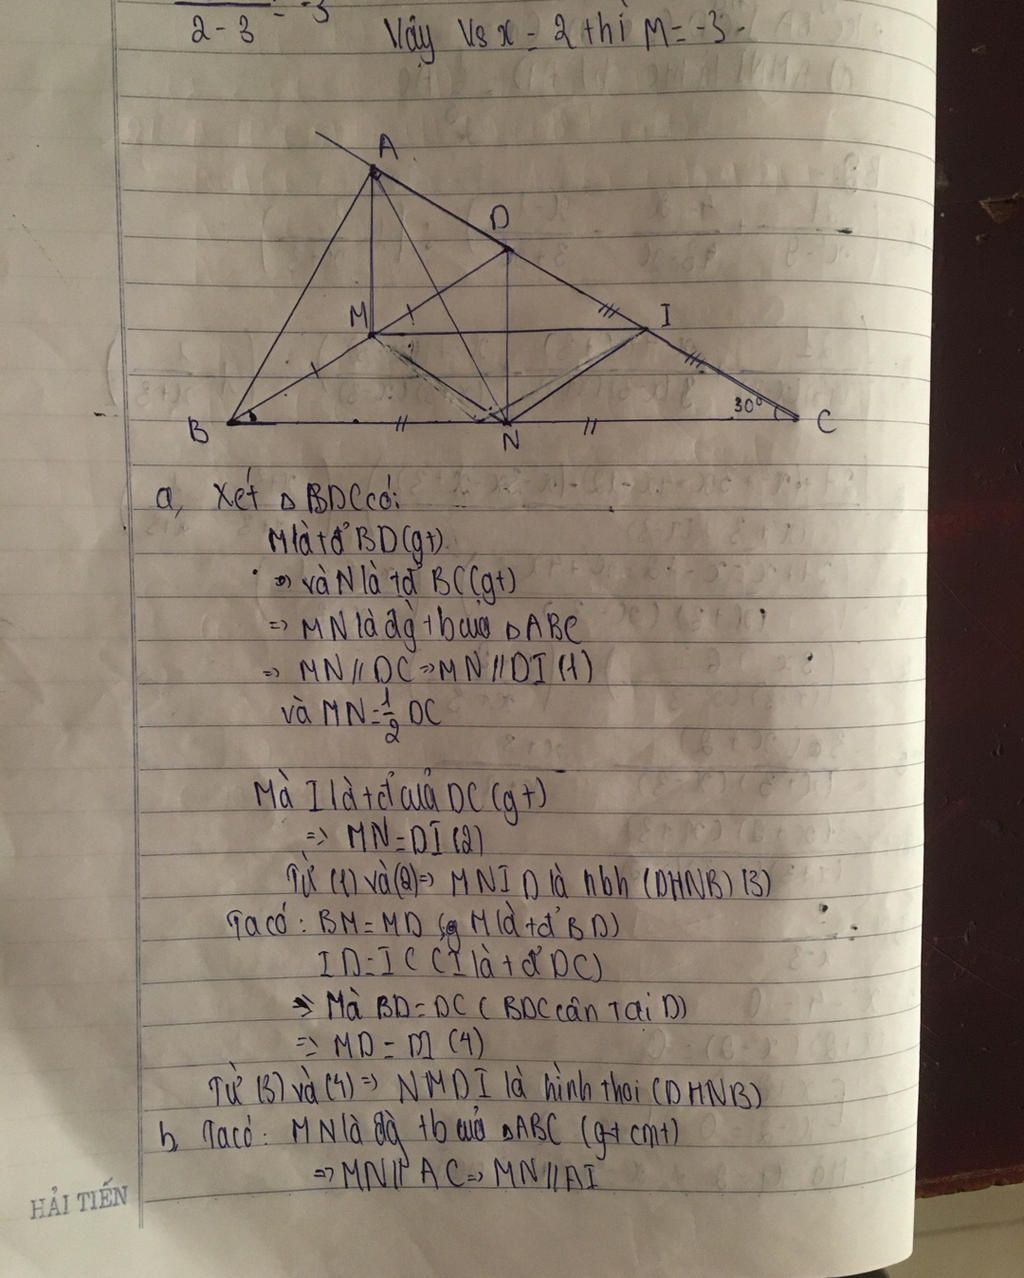 2-3 = -3
Vậy Vs x = 2 thì M = -3.
A
D
M
I
30°
B
N
C
a, Xét △BDC có:
M là tđ BD (gt)
=> và N là tđ BC (gt)
=> MN là đg tb của △ABC
=> MN // DC => MN // DI (1)
và MN = 1/2 DC
Mà I là tđ của DC (gt)
=> MN = DI (2)
Từ (1) và (2) => MNID là hbh (DHNB) (3)
Ta có: BM = MD (M là tđ BD)
ID = IC (I là tđ DC)
=> Mà BD = DC (BDC cân tại D)
=> MD = DI (4)
Từ (3) và (4) => NMDI là hình thoi (DHNB)
b, Ta có: MN là đg tb của △ABC (gt cmt)
=> MN // AC => MN // AI
HẢI TIẾN